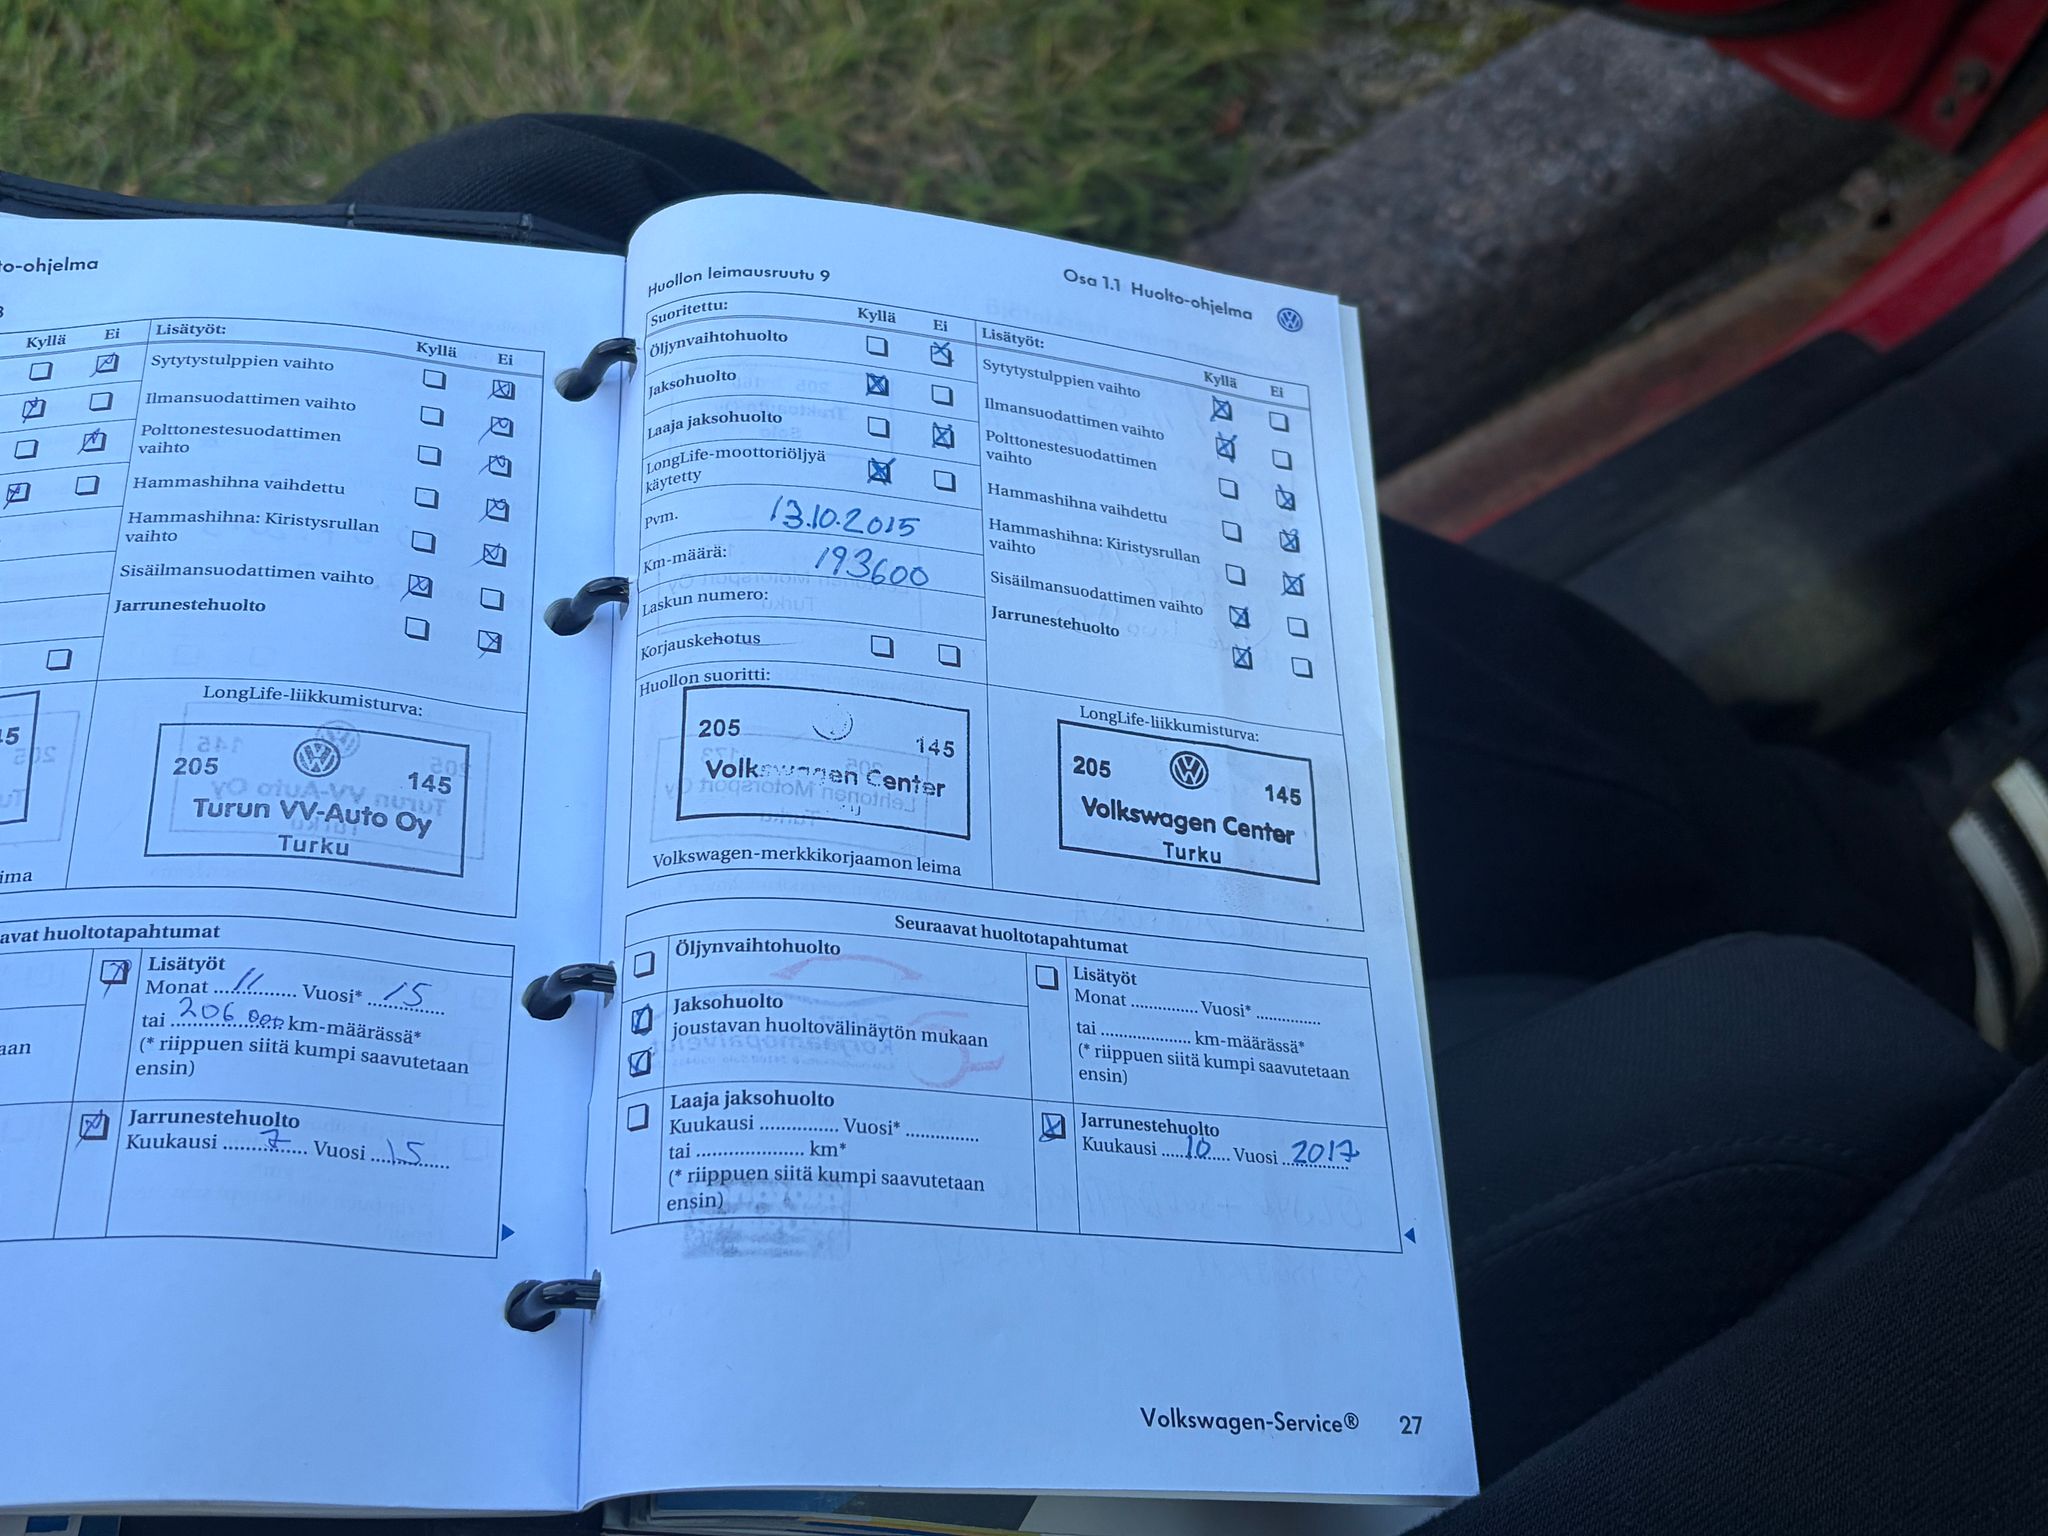 to-ohjelma
Kyllä Ei Lisätyöt: Kyllä Ei
Sytytystulppien vaihto
Ilmansuodattimen vaihto
Polttonestesuodattimen
vaihto
Hammashihna vaihdettu
Hammashihna: Kiristysrullan
vaihto
Sisäilmansuodattimen vaihto
Jarrunestehuolto
LongLife-liikkumisturva:
205 145
Turun VV-Auto Oy
Turku
avat huoltotapahtumat
Lisätyöt
Monat 11 Vuosi* 15
tai 206 000 km-määrässä*
(* riippuen siitä kumpi saavutetaan
ensin)
Jarrunestehuolto
Kuukausi 7 Vuosi 15
Huollon leimausruutu 9
Osa 1.1 Huolto-ohjelma
Suoritettu: Kyllä Ei
Öljynvaihtohuolto
Jaksohuolto
Laaja jaksohuolto
LongLife-moottoriöljyä
käytetty
Pvm. 13.10.2015
Km-määrä: 193600
Laskun numero:
Korjauskehotus
Huollon suoritti:
205 145
Volkswagen Center
Volkswagen-merkkikorjaamon leima
Lisätyöt: Kyllä Ei
Sytytystulppien vaihto
Ilmansuodattimen vaihto
Polttonestesuodattimen
vaihto
Hammashihna vaihdettu
Hammashihna: Kiristysrullan
vaihto
Sisäilmansuodattimen vaihto
Jarrunestehuolto
LongLife-liikkumisturva:
205 145
Volkswagen Center
Turku
Seuraavat huoltotapahtumat
Öljynvaihtohuolto
Jaksohuolto
joustavan huoltovälinäytön mukaan
Laaja jaksohuolto
Kuukausi .............. Vuosi* .............
tai ................... km*
(* riippuen siitä kumpi saavutetaan
ensin)
Lisätyöt
Monat ............ Vuosi* ............
tai ................ km-määrässä*
(* riippuen siitä kumpi saavutetaan
ensin)
Jarrunestehuolto
Kuukausi 10 Vuosi 2017
Volkswagen-Service® 27